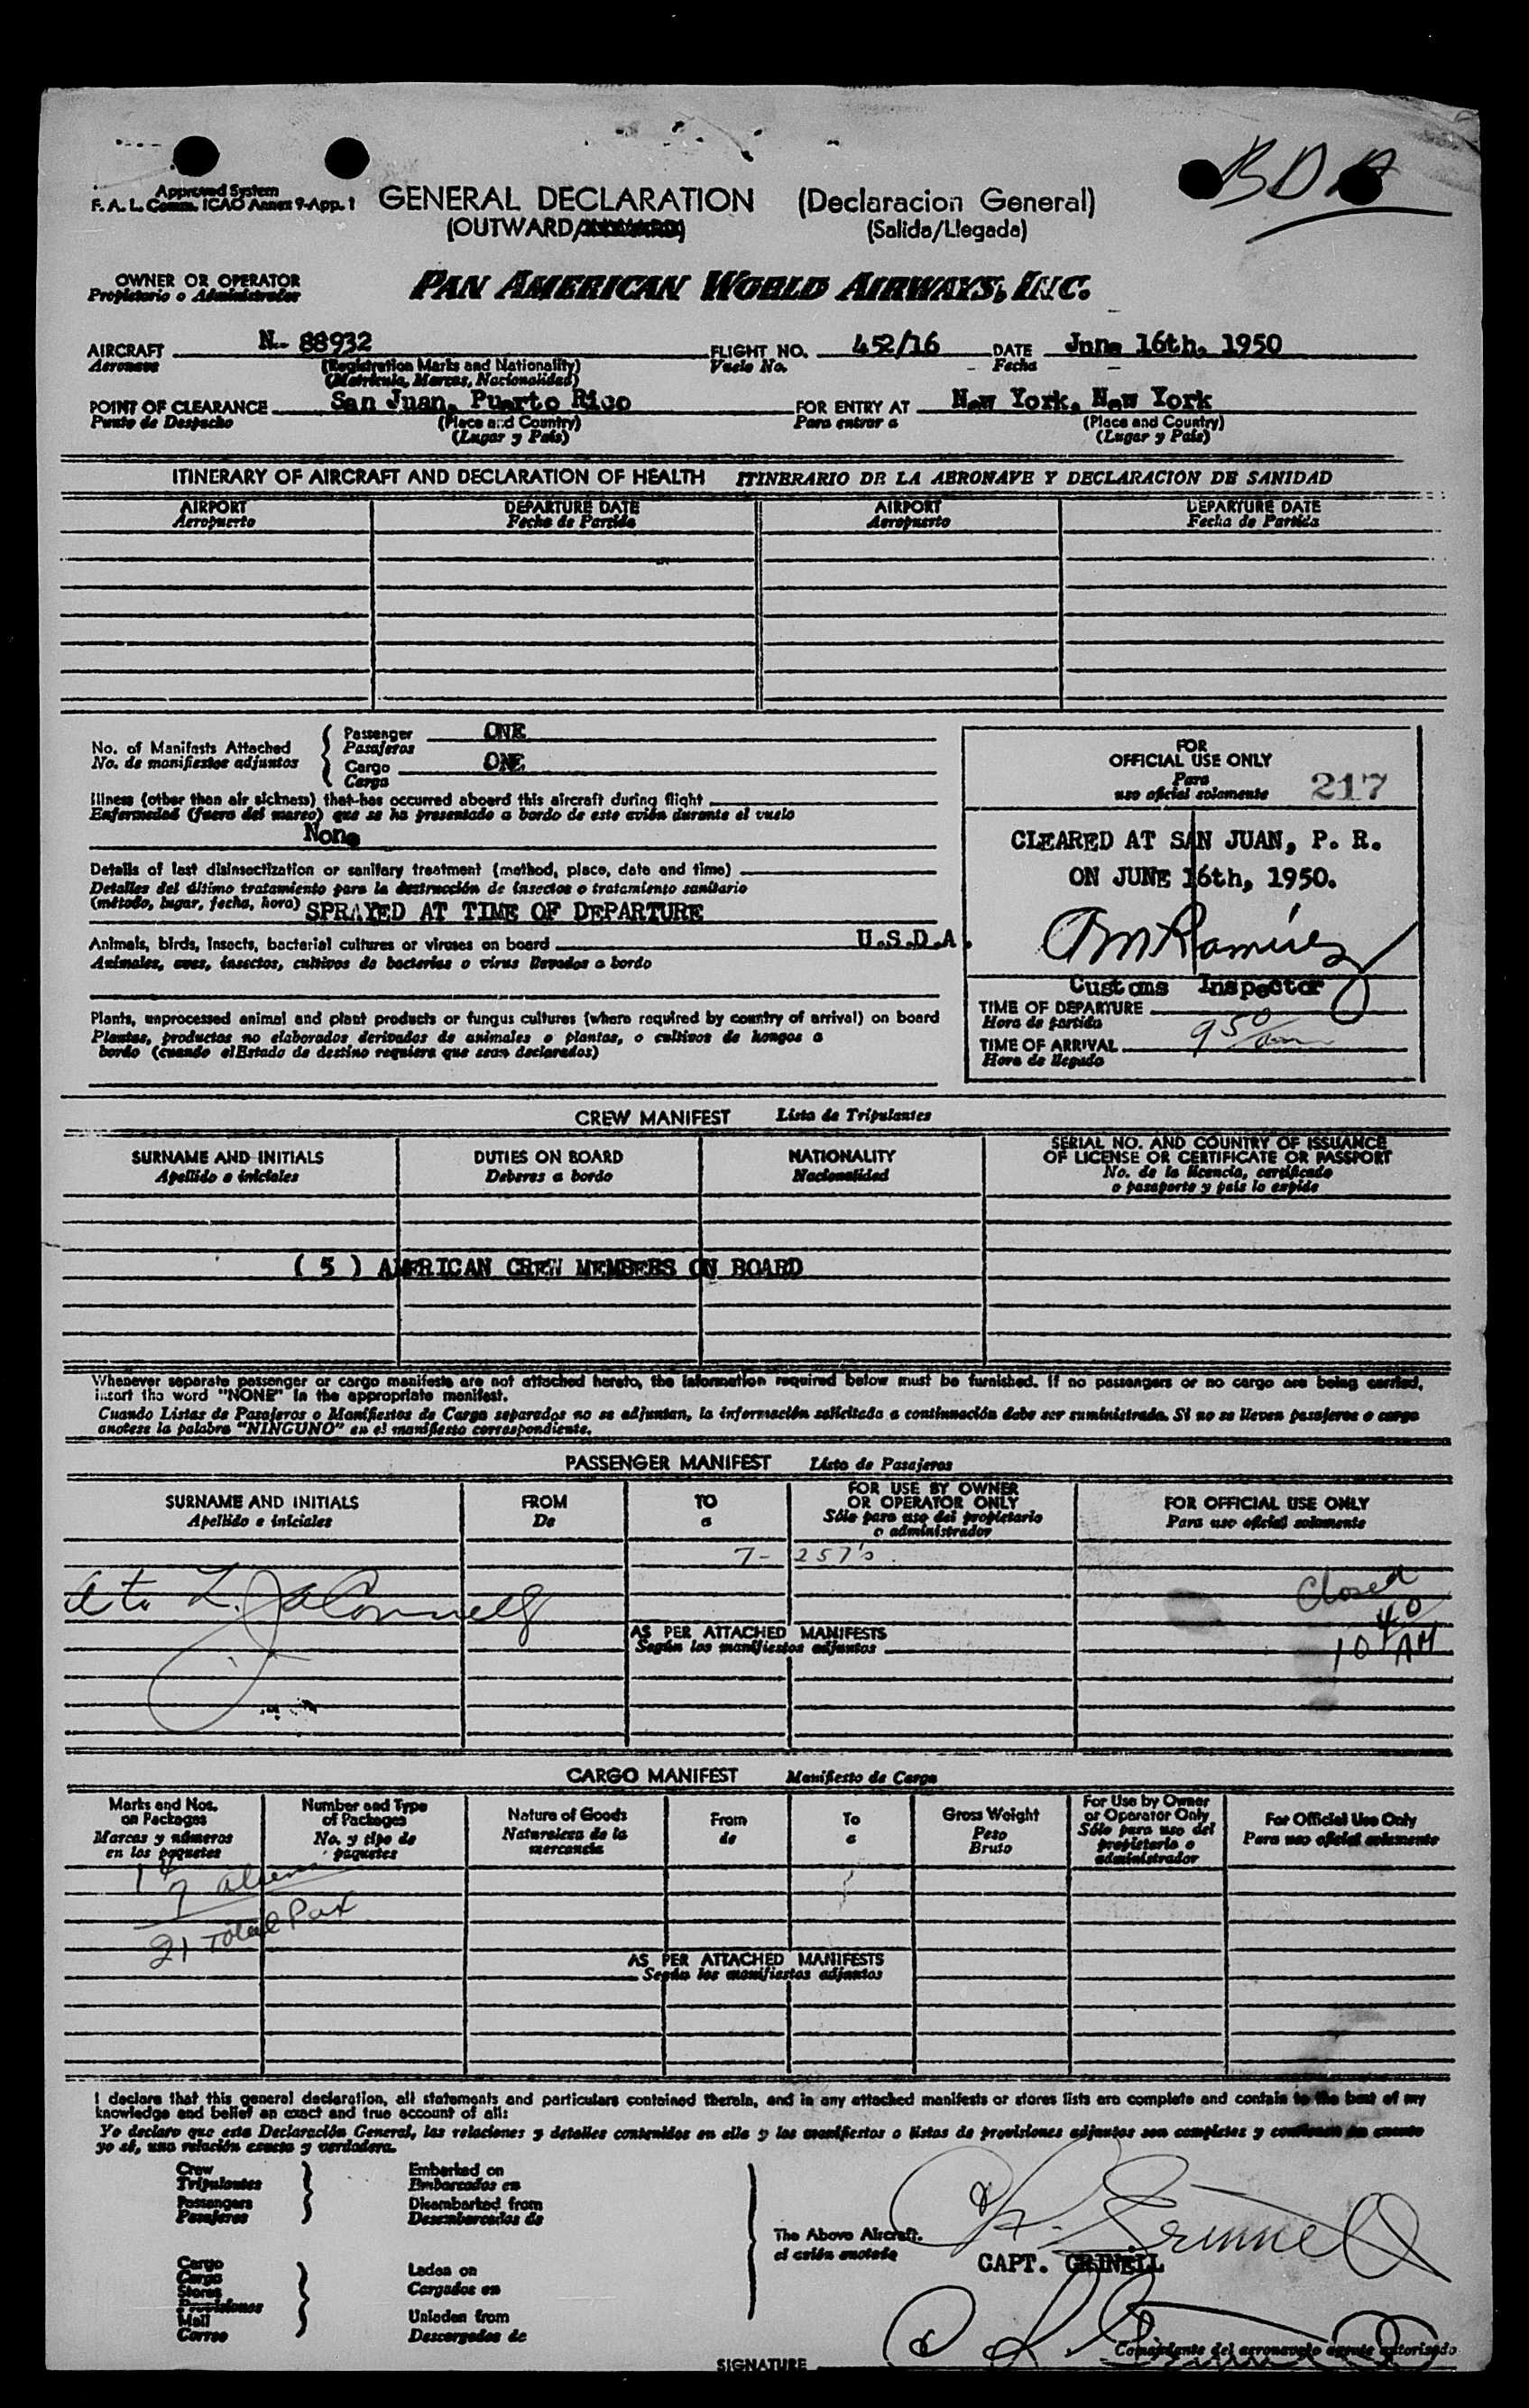 BDA
Approved System
F. A. L. Comm. ICAO Annex 9-App. 1
GENERAL DECLARATION (Declaracion General)
(OUTWARD/ (Salida/Llegada)
OWNER OR OPERATOR PAN AMERICAN WORLD AIRWAYS, INC.
Propietario o Administrador
AIRCRAFT N- 88932 FLIGHT NO. 452/16 DATE June 16th, 1950
Aeronave (Registration Marks and Nationality) Vuelo No. Fecha
(Matricula, Marcas, Nacionalidad)
POINT OF CLEARANCE San Juan, Puerto Rico FOR ENTRY AT New York, New York
Punto de Despacho (Place and Country) Para entrar a (Place and Country)
(Lugar y País) (Lugar y País)
ITINERARY OF AIRCRAFT AND DECLARATION OF HEALTH ITINERARIO DE LA AERONAVE Y DECLARACION DE SANIDAD
AIRPORT DEPARTURE DATE AIRPORT DEPARTURE DATE
Aeropuerto Fecha de Partida Aeropuerto Fecha de Partida
No. of Manifests Attached Passenger ONE
No. de manifiestos adjuntos Pasajeros
Cargo ONE
Carga
Illness (other than air sickness) that has occurred aboard this aircraft during flight
Enfermedad (fuera del mareo) que se ha presentado a bordo de este avión durante el vuelo
None
Details of last disinsectization or sanitary treatment (method, place, date and time)
Detalles del último tratamiento para la destrucción de insectos o tratamiento sanitario
(método, lugar, fecha, hora) SPRAYED AT TIME OF DEPARTURE
Animals, birds, insects, bacterial cultures or viruses on board U.S.D.A.
Animales, aves, insectos, cultivos de bacterias o virus llevados a bordo
Plants, unprocessed animal and plant products or fungus cultures (where required by country of arrival) on board
Plantas, productos no elaborados derivados de animales o plantas, o cultivos de hongos a
bordo (cuando el Estado de destino requiera que sean declarados)
FOR
OFFICIAL USE ONLY
Para
uso oficial solamente 217
CLEARED AT SAN JUAN, P. R.
ON JUNE 16th, 1950.
Ramirez
Customs Inspector
TIME OF DEPARTURE
Hora de partida
TIME OF ARRIVAL 9 50/am
Hora de llegada
CREW MANIFEST Lista de Tripulantes
SURNAME AND INITIALS DUTIES ON BOARD NATIONALITY SERIAL NO. AND COUNTRY OF ISSUANCE
OF LICENSE OR CERTIFICATE OR PASSPORT
Apellido e iniciales Deberes a bordo Nacionalidad No. de la licencia, certificado
o pasaporte y país lo expide
( 5 ) AMERICAN CREW MEMBERS ON BOARD
Whenever separate passenger or cargo manifests are not attached hereto, the information required below must be furnished. If no passengers or no cargo are being carried,
insert the word "NONE" in the appropriate manifest.
Cuando Listas de Pasajeros o Manifiestos de Carga separados no se adjuntan, la información solicitada a continuación debe ser suministrada. Si no se lleven pasajeros o carga
anotese la palabra "NINGUNO" en el manifiesto correspondiente.
PASSENGER MANIFEST Lista de Pasajeros
SURNAME AND INITIALS FROM TO FOR USE BY OWNER
OR OPERATOR ONLY FOR OFFICIAL USE ONLY
Apellido e iniciales De a Sólo para uso del propietario
o administrador Para uso oficial solamente
7- 257's
Closed
10 40 AM
AS PER ATTACHED MANIFESTS
Según los manifiestos adjuntos
CARGO MANIFEST Manifiesto de Carga
Marks and Nos.
on Packages
Marcas y números
en los paquetes
Number and Type
of Packages
No. y tipo de
paquetes
Nature of Goods
Naturaleza de la
mercancía
From
de
To
a
Gross Weight
Peso
Bruto
For Use by Owner
or Operator Only
Sólo para uso del
propietario o
administrador
For Official Use Only
Para uso oficial solamente
14
7 aliens
21 Total Pax
AS PER ATTACHED MANIFESTS
Según los manifiestos adjuntos
I declare that this general declaration, all statements and particulars contained therein, and in any attached manifests or stores lists are complete and contain to the best of my
knowledge and belief an exact and true account of all:
Yo declaro que esta Declaración General, las relaciones y detalles contenidos en ella y los manifiestos o listas de provisiones adjuntos son completos y contienen en cuanto
yo sé, una relación exacta y verdadera.
Crew Embarked on
Tripulantes Embarcados en
Passengers Disembarked from
Pasajeros Desembarcados de
The Above Aircraft.
el avión anotado
CAPT. GRINELL
Cargo
Carga Laden on
Stores Cargados en
Provisiones
Mail Unladen from
Correo Descargados de
Comandante del aeronave/o agente autorizado
SIGNATURE